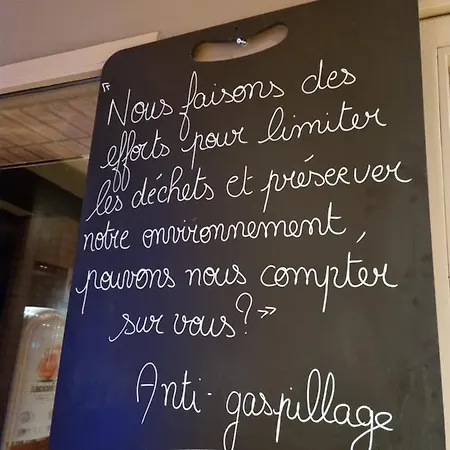 "Nous faisons des
efforts pour limiter
les déchets et préserver
notre onvironnement,
pouvons nous compter
sur vous?"
Anti-gaspillage